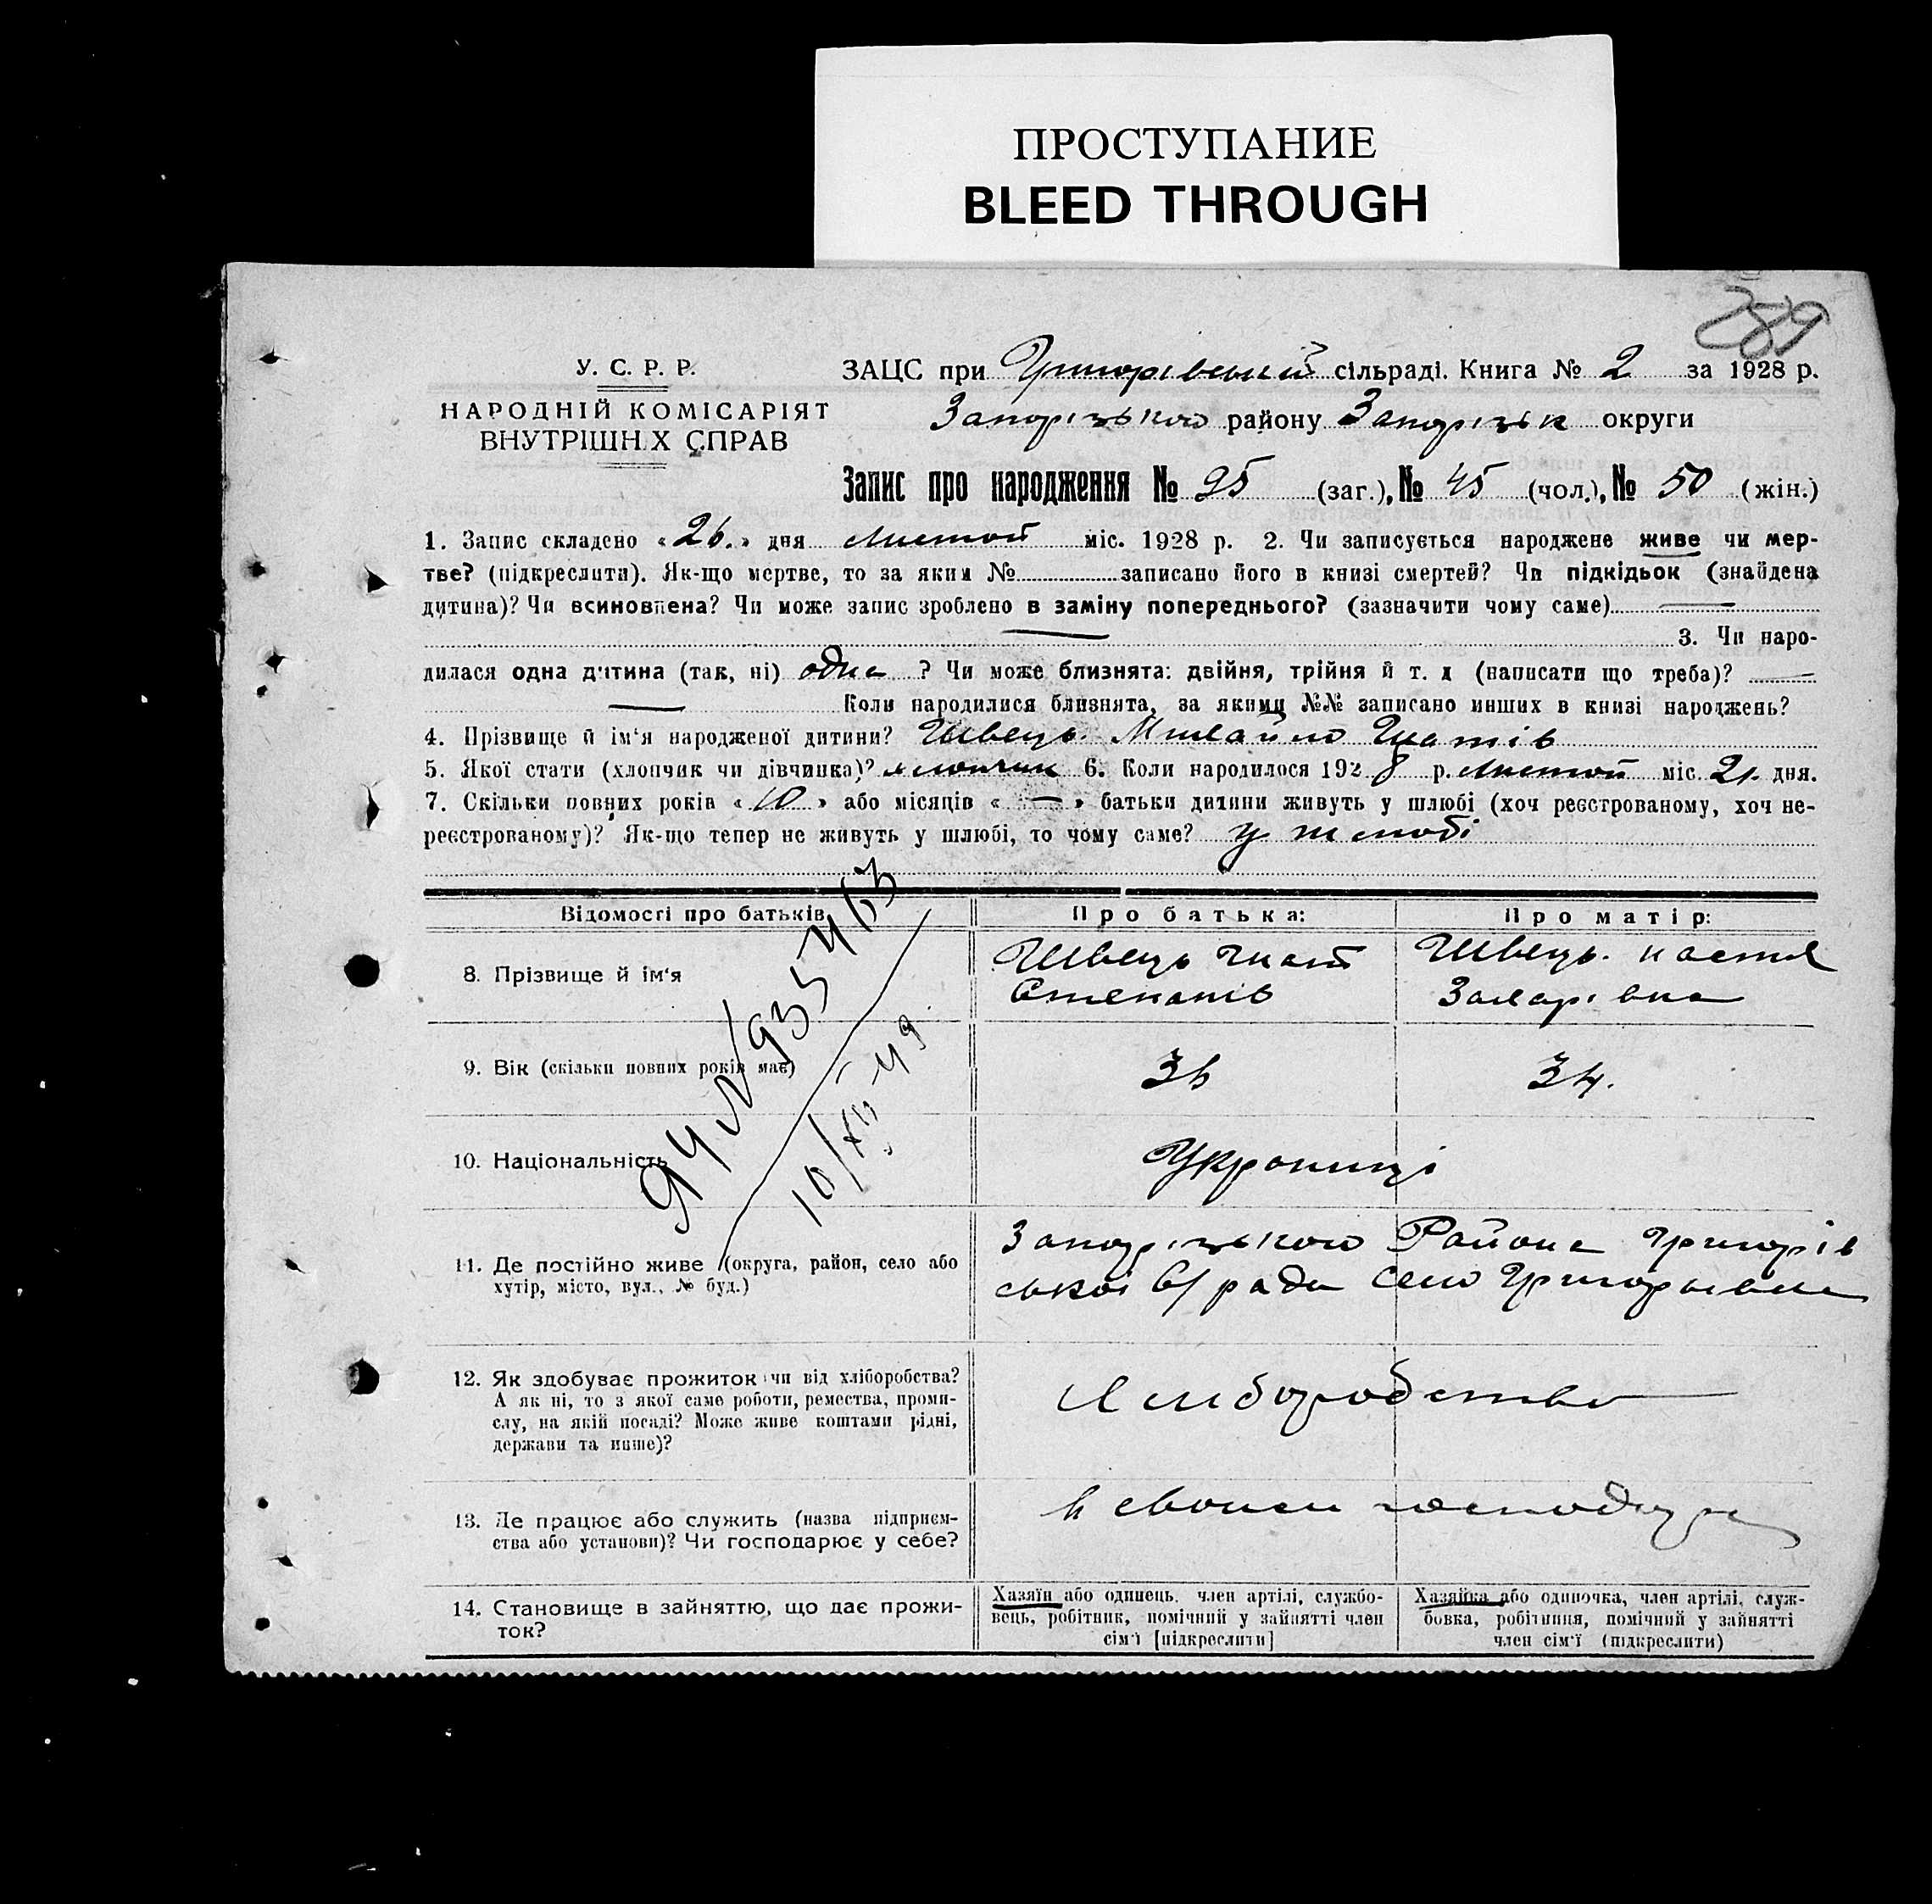 ПРОСТУПАНИЕ
BLEED THROUGH
289
У. С. Р. Р.
НАРОДНІЙ КОМІСАРІЯТ
ВНУТРІШН.Х СПРАВ
ЗАЦС при Григорівській сільраді. Книга № 2 за 1928 р.
Запорізького району Запорізьк округи
Запис про народження № 95 (заг.), № 45 (чол.), № 50 (жін.)
1. Запис складено «26.» дня Листоп міс. 1928 р. 2. Чи записується народжене живе чи мер-
тве? (підкреслити). Як-що мертве, то за яким № записано його в книзі смертей? Чи підкідьок (знайдена
дитина)? Чи всиновлена? Чи може запис зроблено в заміну попереднього? (зазначити чому саме) —
— 3. Чи наро-
дилася одна дитина (так, ні) одна ? Чи може близнята: двійня, трійня й т. д (написати що треба)? —
— Коли народилися близнята, за якими №№ записано инших в книзі народжень?
4. Прізвище й ім'я народженої дитини? Швець. Михайло Гнатів
5. Якої стати (хлопчик чи дівчинка)? хлопчик 6. Коли народилося 1928 р. Листоп міс. 21. дня.
7. Скільки повних років «10» або місяців «—» батьки дитини живуть у шлюбі (хоч реєстрованому, хоч не-
реєстрованому)? Як-що тепер не живуть у шлюбі, то чому саме? у шлюбі
Відомості про батьків
Про батька:
Про матір:
8. Прізвище й ім'я
Швець Гнат
Степанів
Швець. настя
Захарівна
9. Вік (скільки повних років має)
36
34.
10. Національність
Українці
11. Де постійно живе (округа, район, село або
хутір, місто, вул., № буд.)
Запорізького Района Григорів
ської С/ради село Григорьевка
12. Як здобуває прожиток чи від хліборобства?
А як ні, то з якої саме роботи, ремества, проми-
слу, на якій посаді? Може живе коштами рідні,
держави та инше)?
Хлиборобство
13. Де працює або служить (назва підприєм-
ства або установи)? Чи господарює у себе?
в своем
14. Становище в зайняттю, що дає прожи-
ток?
Хазяїн або одинець, член артілі, службо-
вець, робітник, помічний у зайнятті член
сім'ї [підкреслити]
Хазяйка або одиночка, член артілі, служ-
бовка, робітниця, помічний у зайнятті
член сім'ї (підкреслити)
935463
10/XII-49